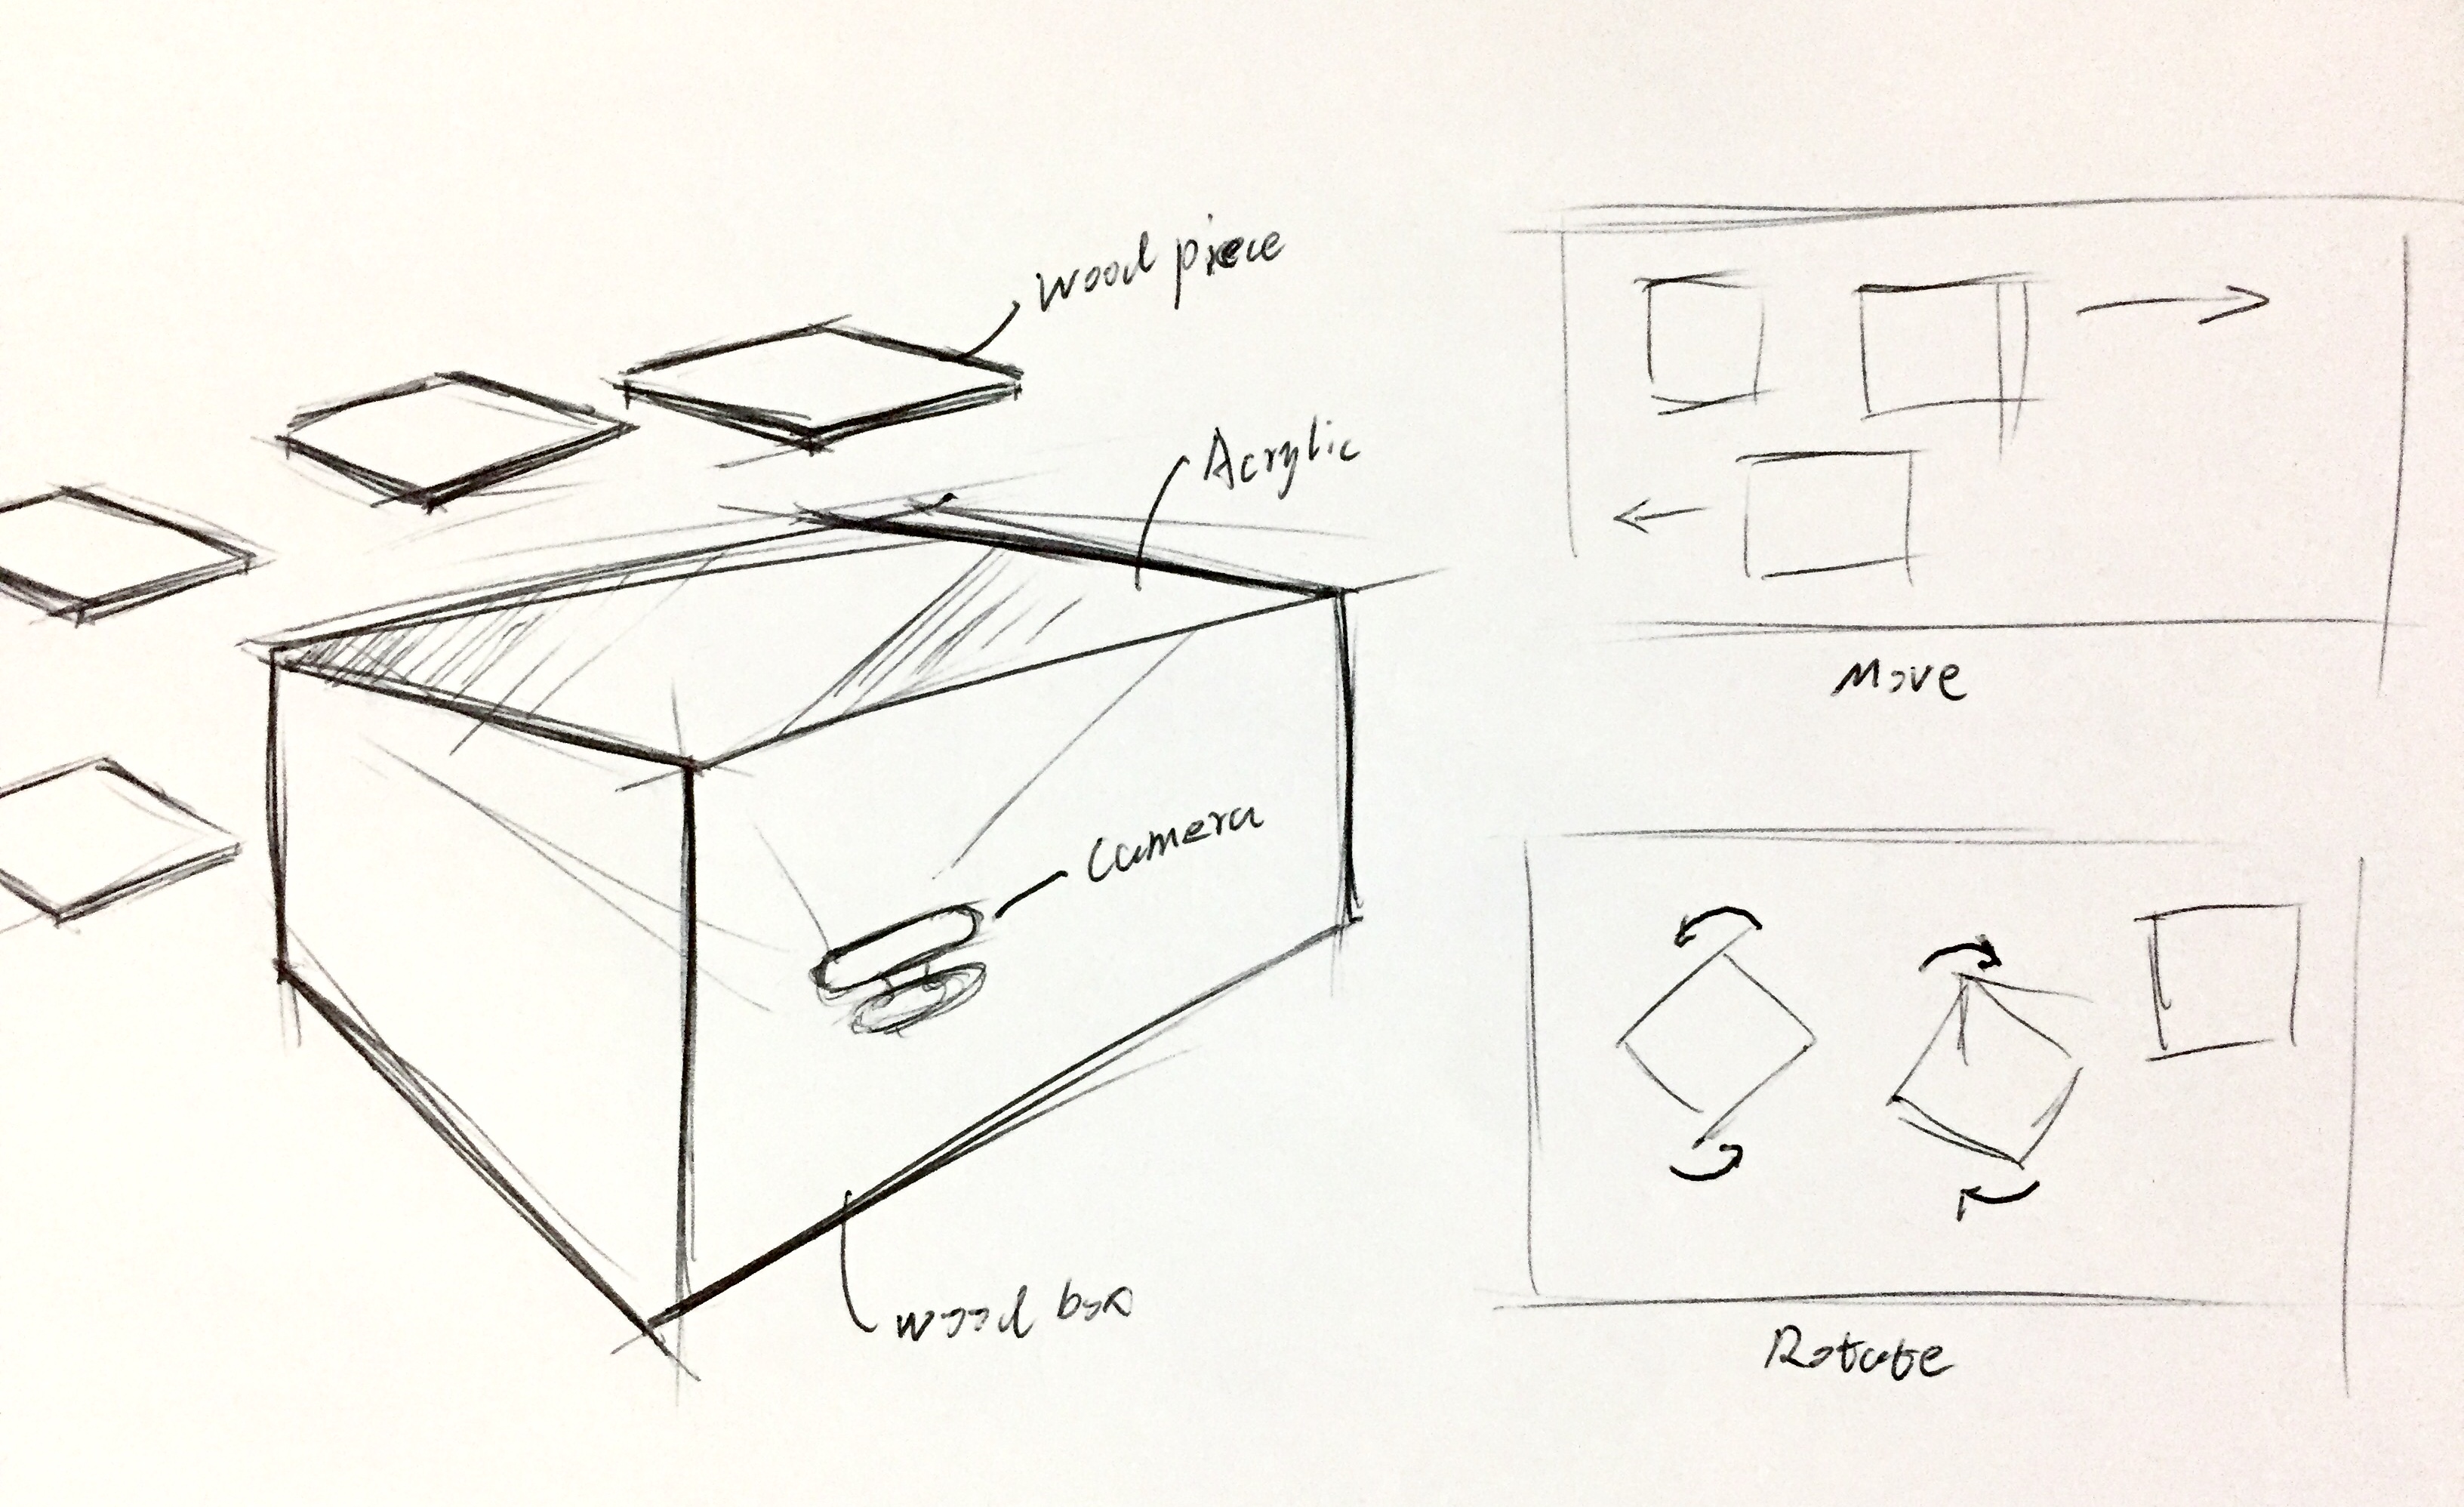 wood piece
Acrylic
Camera
wood box
Move
Rotate